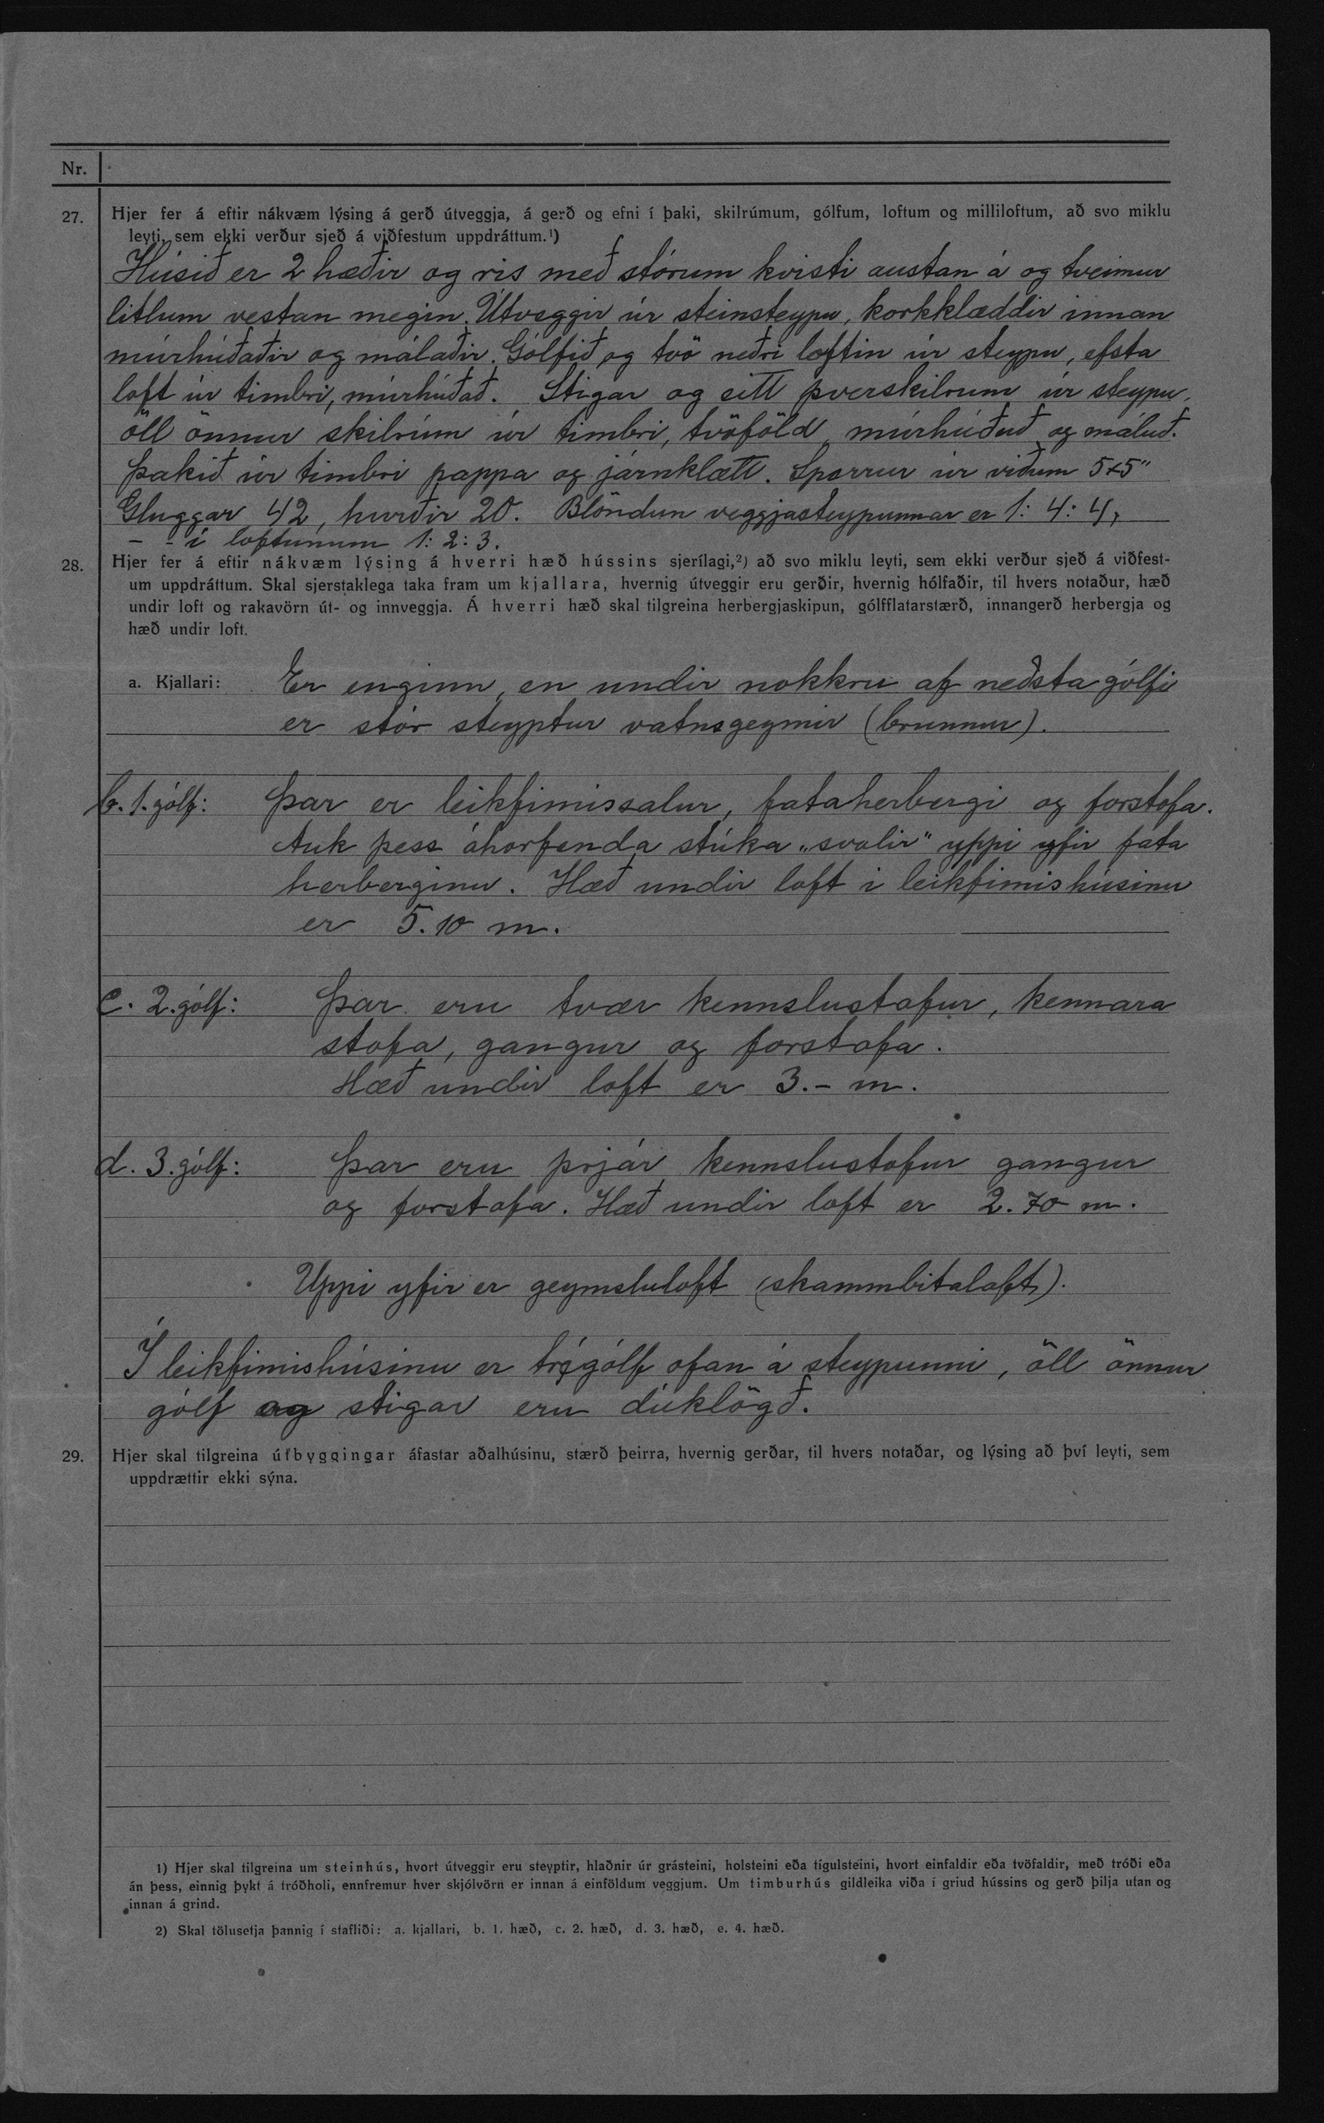 Nr.
27. Hjer fer á eftir nákvæm lýsing á gerð útveggja, á gerð og efni í þaki, skilrúmum, gólfum, loftum og milliloftum, að svo miklu
leyti, sem ekki verður sjeð á viðfestum uppdráttum.¹)
Húsið er 2 hæðir og ris með stórum kvisti austan á og tveimur
litlum vestan megin. Útveggir úr steinsteypu, korkklæddir innan
múrhúðaðir og málaðir. Gólfið og tvö neðri loftin úr steypu, efsta
loft úr timbri, múrhúðað. Stigar og eitt þverskilrum úr steypu,
öll önnur skilrúm úr timbri, tvöföld, múrhúðuð og máluð.
Þakið úr timbri pappa og járnklætt. Sperrur úr viðum 5x5"
Gluggar 42, hurðir 20. Blöndun veggjasteypunnar er 1:4:4,
- - í loftunum 1:2:3.
28. Hjer fer á eftir nákvæm lýsing á hverri hæð hússins sjerílagi,²) að svo miklu leyti, sem ekki verður sjeð á viðfest-
um uppdráttum. Skal sjerstaklega taka fram um kjallara, hvernig útveggir eru gerðir, hvernig hólfaðir, til hvers notaður, hæð
undir loft og rakavörn út- og innveggja. Á hverri hæð skal tilgreina herbergjaskipun, gólfflatarstærð, innangerð herbergja og
hæð undir loft.
a. Kjallari: Er enginn, en undir nokkru af neðsta gólfi
er stór steyptur vatnsgeymir (brunnur).
b. 1. gólf: Þar er leikfimissalur, fataherbergi og forstofa.
Auk þess áhorfenda stúka „svalir" uppi yfir fata
herberginu. Hæð undir loft i leikfimishúsinu
er 5.10 m.
c. 2. gólf: Þar eru tvær kennslustofur, kennara
stofa, gangur og forstofa.
Hæð undir loft er 3.- m.
d. 3. gólf: Þar eru þrjár kennslustofur gangur
og forstofa. Hæð undir loft er 2.70 m.
Uppi yfir er geymsluloft (skammbitaloft).
Í leikfimishúsinu er trégólf ofan á steypunni, öll önnur
gólf og stigar eru dúklögð.
29. Hjer skal tilgreina útbyggingar áfastar aðalhúsinu, stærð þeirra, hvernig gerðar, til hvers notaðar, og lýsing að því leyti, sem
uppdrættir ekki sýna.
1) Hjer skal tilgreina um steinhús, hvort útveggir eru steyptir, hlaðnir úr grásteini, holsteini eða tígulsteini, hvort einfaldir eða tvöfaldir, með tróði eða
án þess, einnig þykt á tróðholi, ennfremur hver skjólvörn er innan á einföldum veggjum. Um timburhús gildleika viða í griud hússins og gerð þilja utan og
innan á grind.
2) Skal tölusetja þannig í stafliði: a. kjallari, b. 1. hæð, c. 2. hæð, d. 3. hæð, e. 4. hæð.